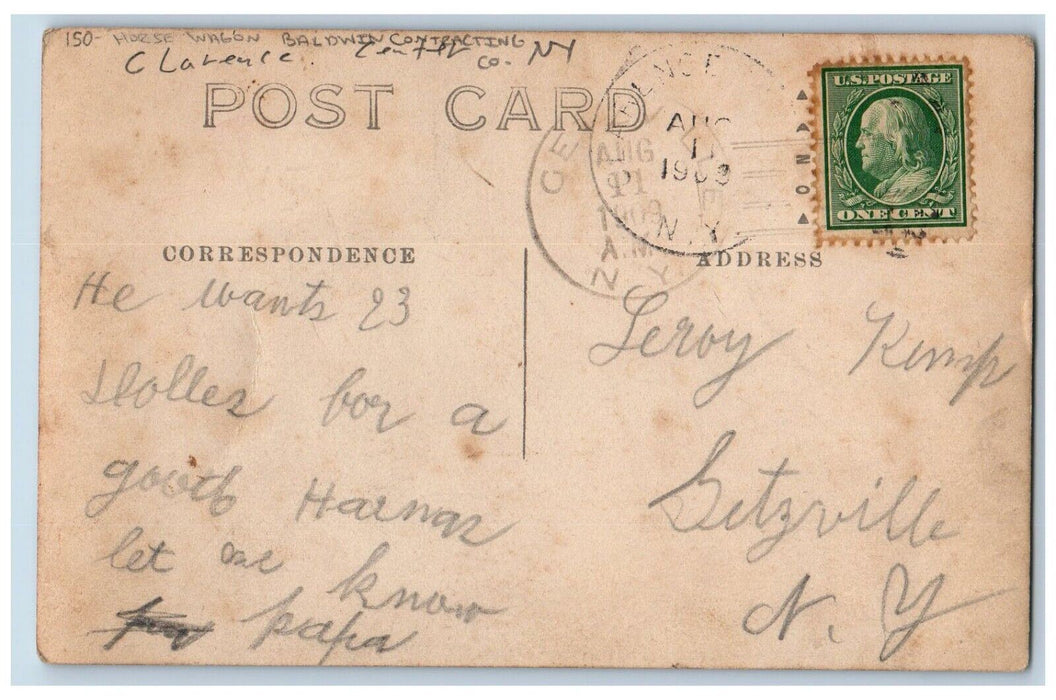 150- HORSE WAGON BALDWIN CONTRACTING CO.
Clarence NY
POST CARD
U.S. POSTAGE
ONE CENT
CLARENCE
AUG
11
1909
N.Y.
AUG
11
1909
A.M.
N.Y.
CORRESPONDENCE
He wants 23
Dolles for a
good Harnas
let me know
papa
ADDRESS
Leroy Kemp
Getzville
N. Y